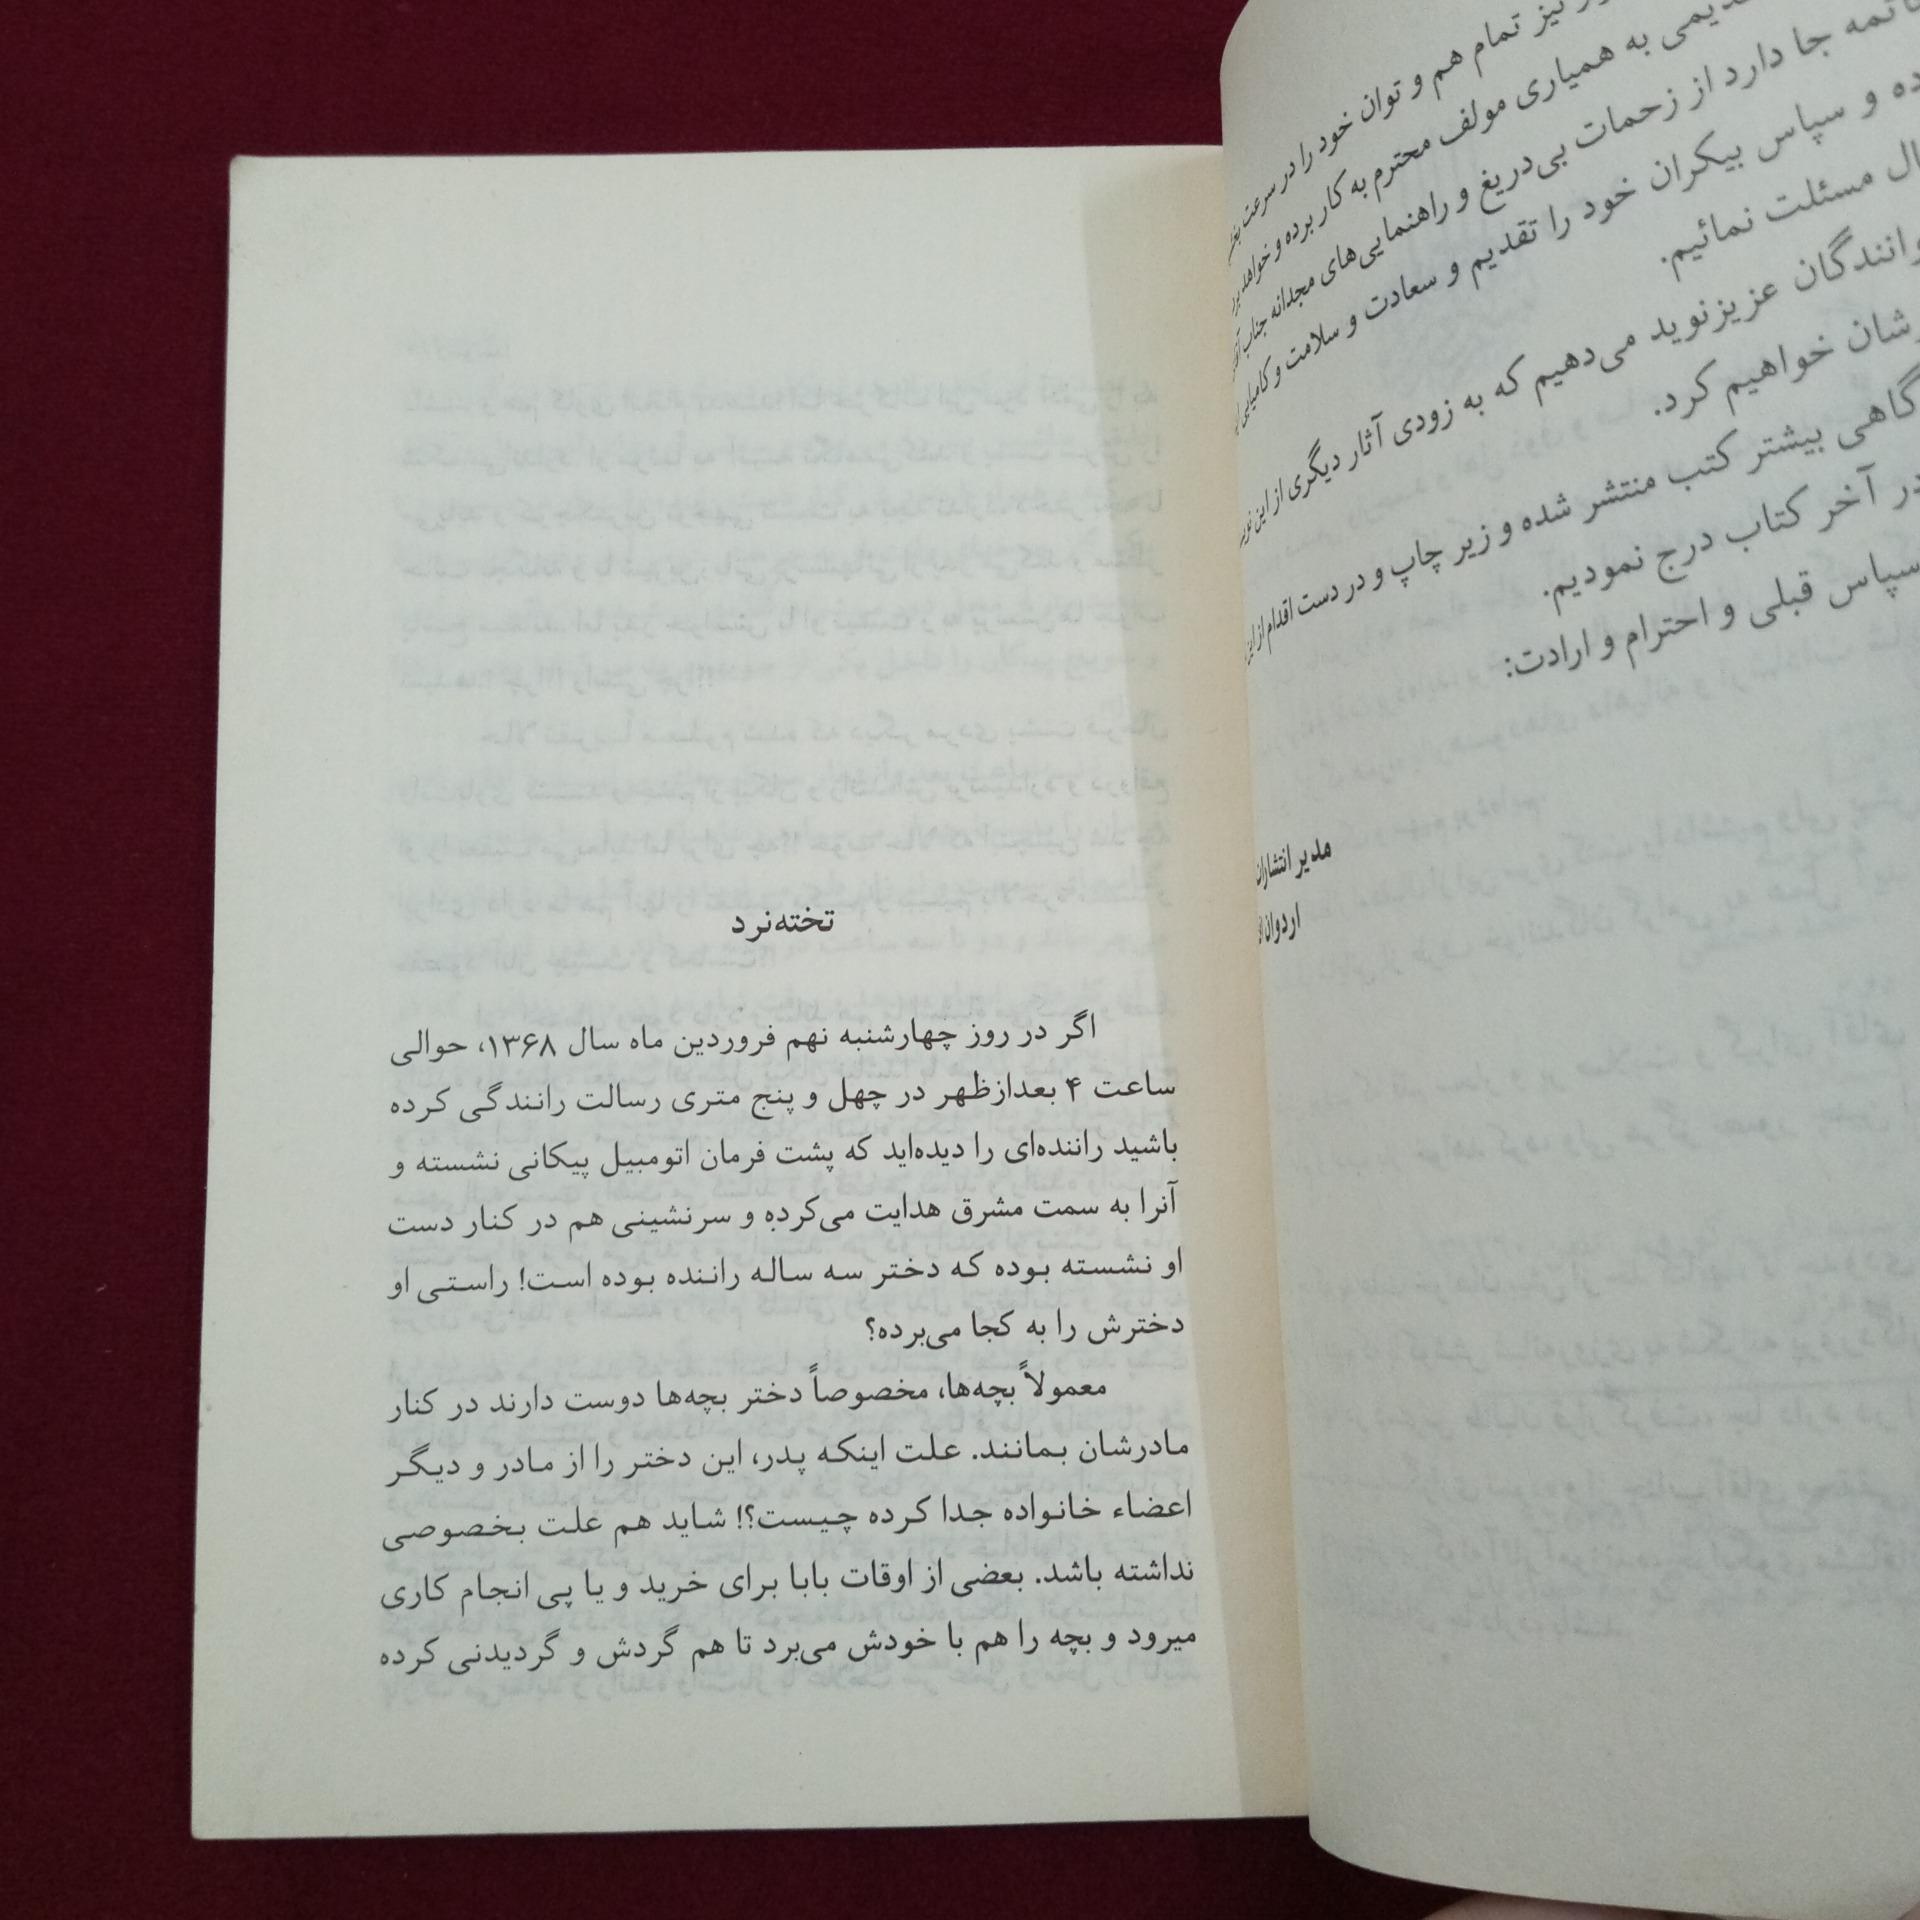 نیز تمام هم و توان خود را در سرعت
به همیاری مولف محترم به کار برده و خواهد
جا دارد از زحمات بی‌دریغ و راهنمایی‌های مجدانه جناب
و سپاس بیکران خود را تقدیم و سعادت و سلامت و کامیابی
مسئلت نمائیم.
عزیزنوید می‌دهیم که به زودی آثار دیگری از این
خواهیم کرد.
بیشتر کتب منتشر شده و زیر چاپ و در دست اقدام از این
در آخر کتاب درج نمودیم.
سپاس قبلی و احترام و ارادت:
مدیر انتشارات
اردوان
تخته‌نرد
اگر در روز چهارشنبه نهم فروردین ماه سال ۱۳۶۸، حوالی
ساعت ۴ بعدازظهر در چهل و پنج متری رسالت رانندگی کرده
باشید راننده‌ای را دیده‌اید که پشت فرمان اتومبیل پیکانی نشسته و
آنرا به سمت مشرق هدایت می‌کرده و سرنشینی هم در کنار دست
او نشسته بوده که دختر سه ساله راننده بوده است! راستی او
دخترش را به کجا می‌برده؟
معمولاً بچه‌ها، مخصوصاً دختر بچه‌ها دوست دارند در کنار
مادرشان بمانند. علت اینکه پدر، این دختر را از مادر و دیگر
اعضاء خانواده جدا کرده چیست؟! شاید هم علت بخصوصی
نداشته باشد. بعضی از اوقات بابا برای خرید و یا پی انجام کاری
میرود و بچه را هم با خودش می‌برد تا هم گردش و گردیدنی کرده